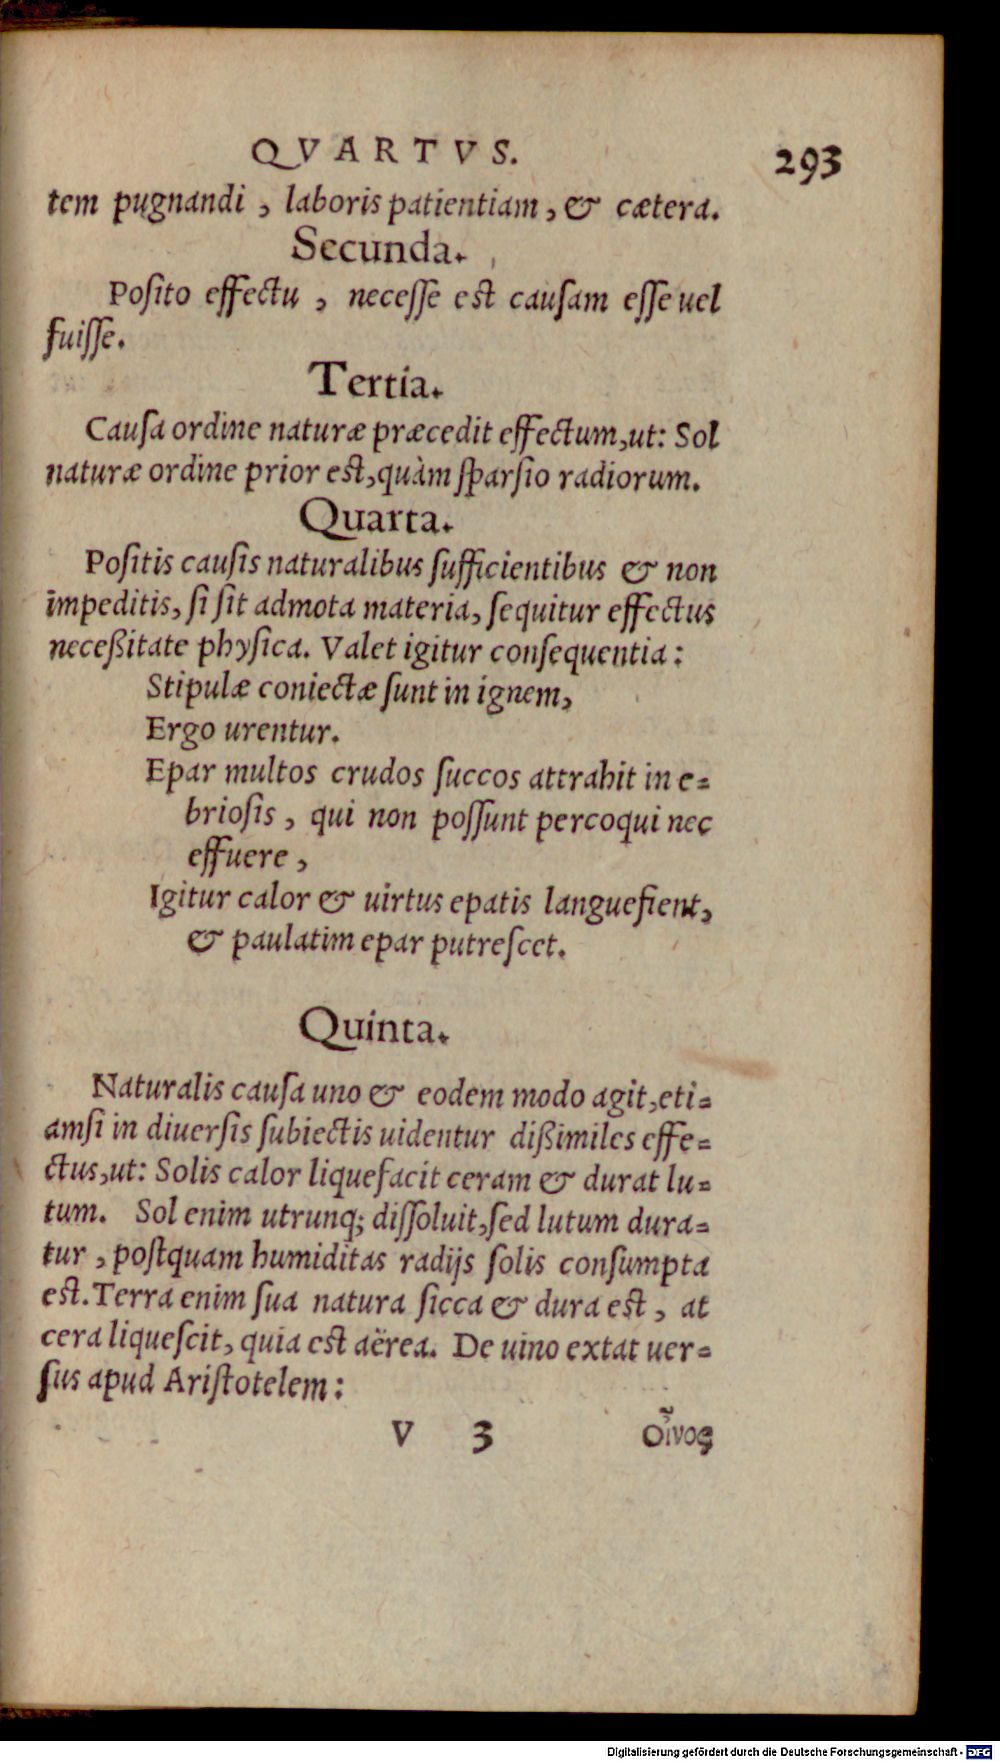 QVARTVS. 293
tem pugnandi, laboris patientiam, & cætera.
Secunda.
Poſito effectu, neceſſe est cauſam eſſe uel
fuiſſe.
Tertia.
Cauſa ordine naturæ præcedit effectum, ut: Sol
naturæ ordine prior est, quàm ſparſio radiorum.
Quarta.
Poſitis cauſis naturalibus ſufficientibus & non
impeditis, ſi ſit admota materia, ſequitur effectus
neceßitate phyſica. Valet igitur conſequentia:
Stipulæ coniectæ ſunt in ignem,
Ergo urentur.
Epar multos crudos ſuccos attrahit in e-
brioſis, qui non poſſunt percoqui nec
effuere,
Igitur calor & uirtus epatis languefient,
& paulatim epar putreſcet.
Quinta.
Naturalis cauſa uno & eodem modo agit, eti-
amſi in diuerſis ſubiectis uidentur dißimiles effe-
ctus, ut: Solis calor liquefacit ceram & durat lu-
tum. Sol enim utrunq; diſſoluit, ſed lutum dura-
tur, postquam humiditas radijs ſolis conſumpta
est. Terra enim ſua natura ſicca & dura est, at
cera liqueſcit, quia est aërea. De uino extat uer-
ſus apud Ariſtotelem:
V 3 οἶνος
Digitalisierung gefördert durch die Deutsche Forschungsgemeinschaft - DFG